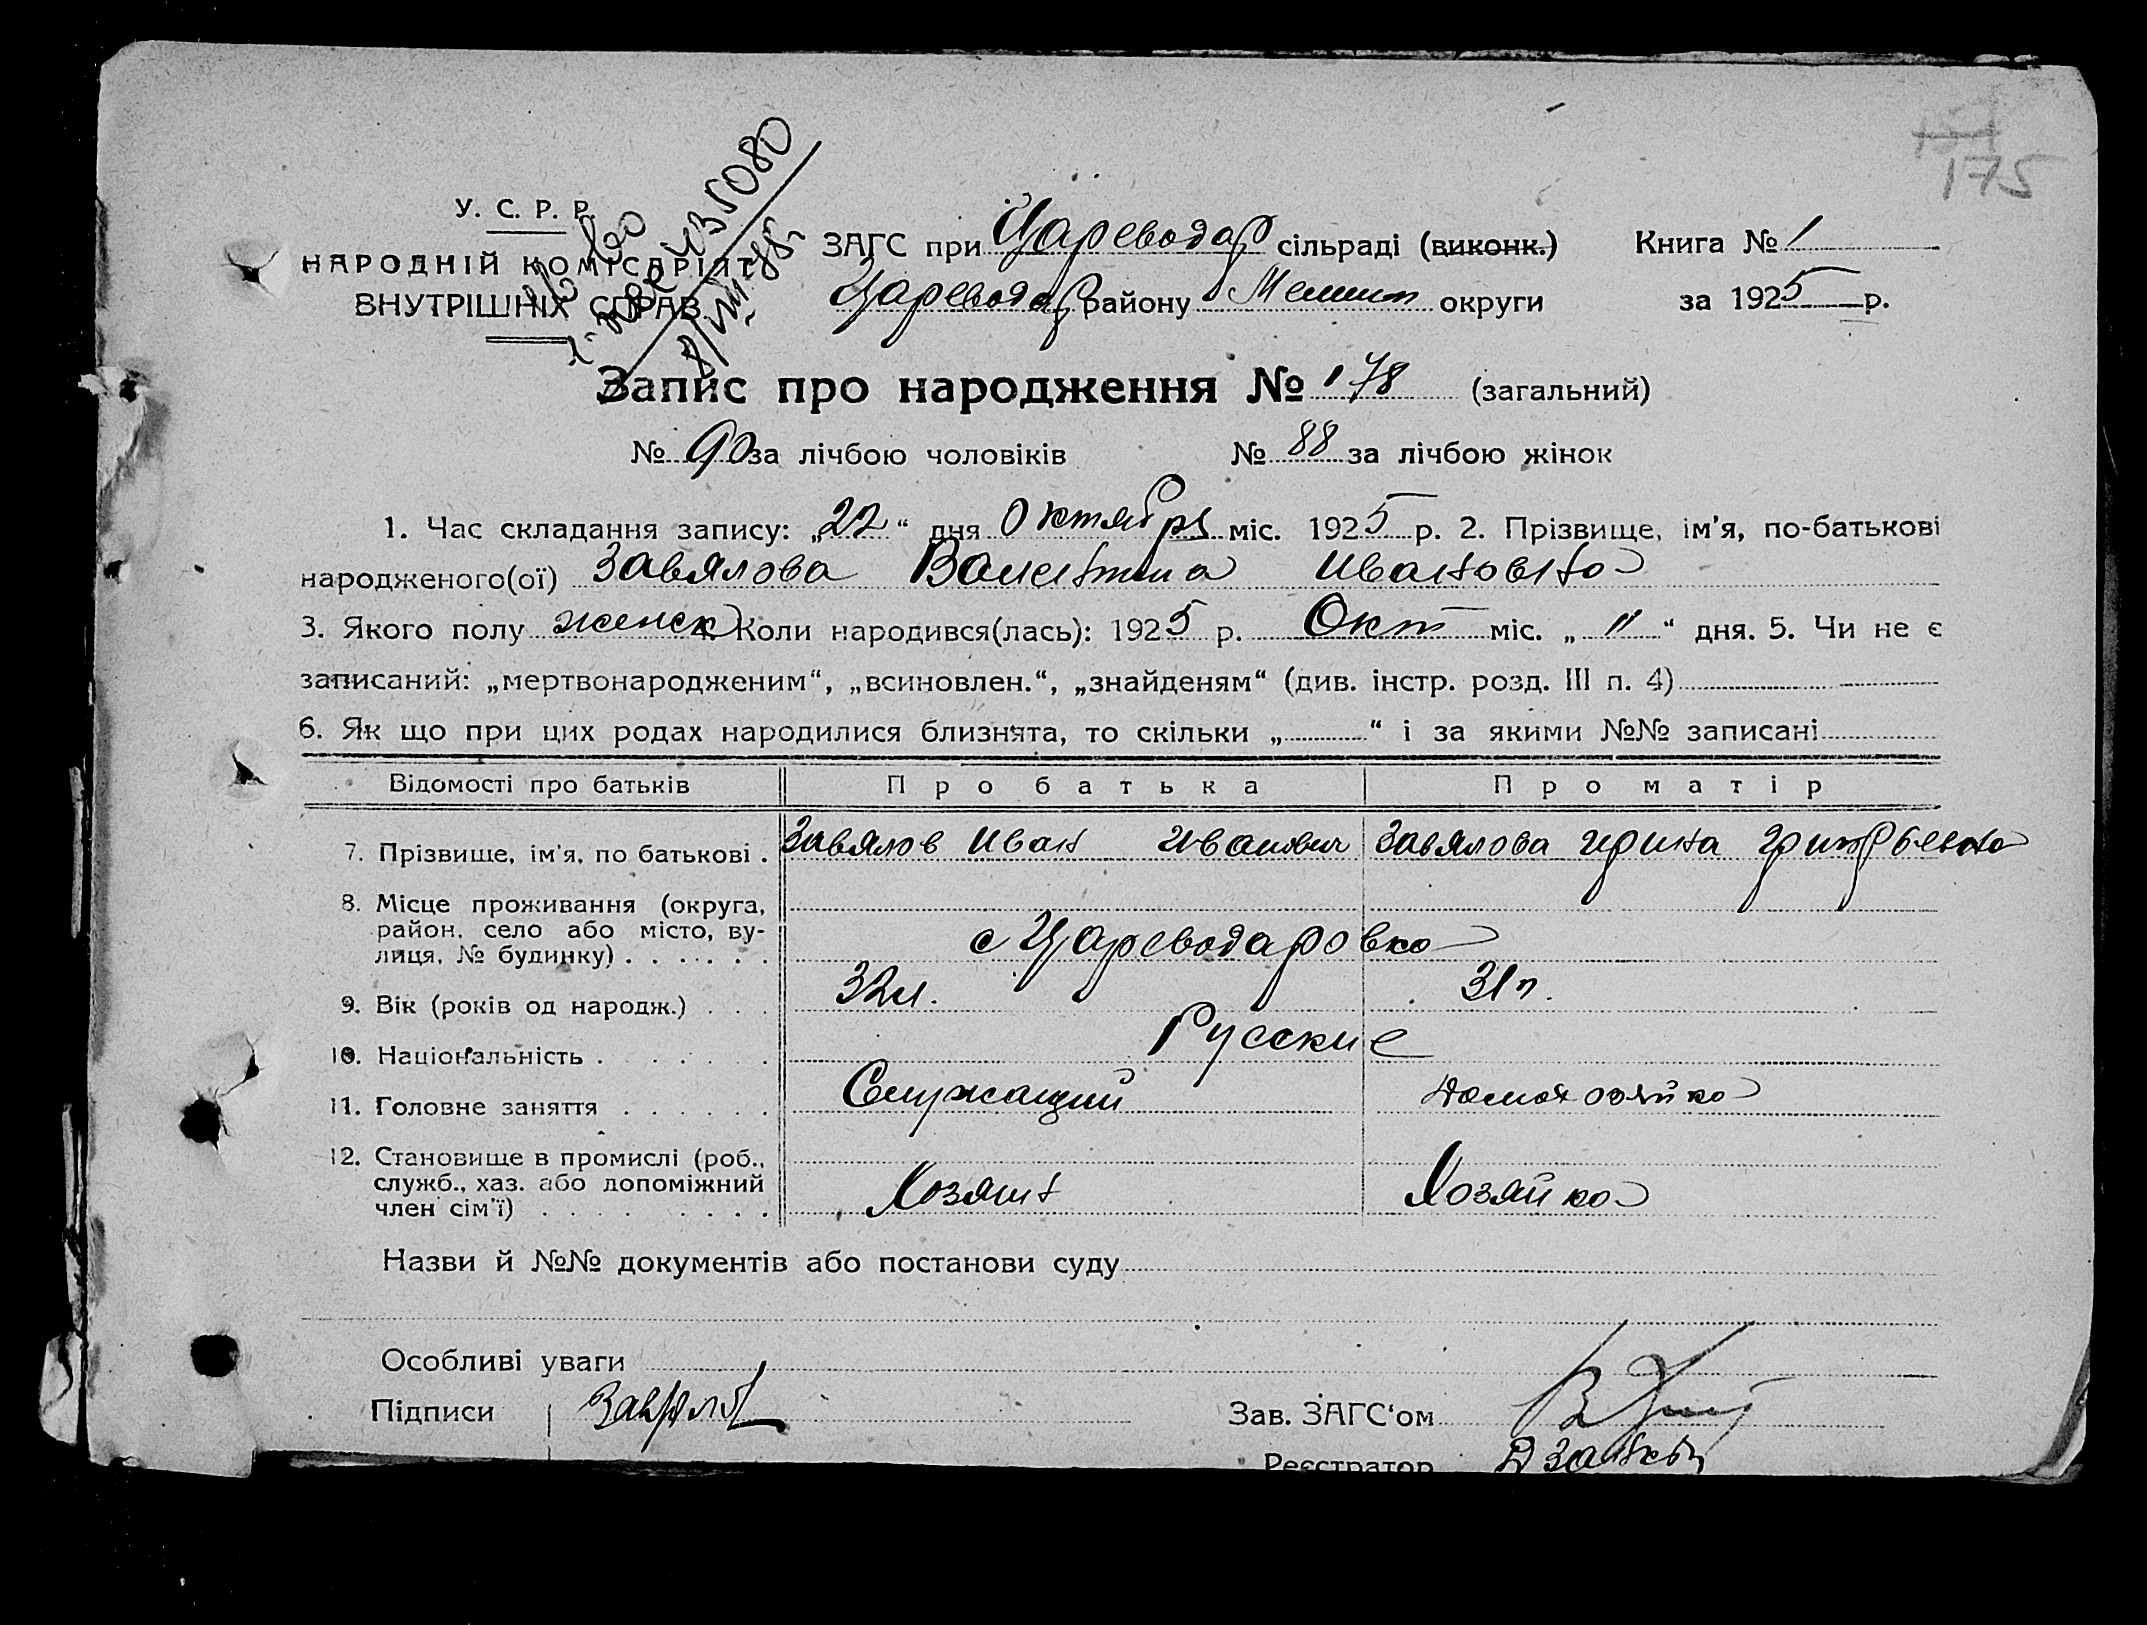 175
У. С. Р. Р.
НАРОДНІЙ КОМІСАРІЯТ
ВНУТРІШНІХ СПРАВ.
ЗАГС при Цареводар сільраді (виконк.) Книга № 1
Цареводар району Мелит округи за 1925 р.
Запис про народження № 178 (загальний)
№ 90 за лічбою чоловіків № 88 за лічбою жінок
1. Час складання запису: „22“ дня Октября міс. 1925 р. 2. Прізвище, ім'я, по-батькові
народженого(ої) Завялова Валентина Ивановна
3. Якого полу женск 4. Коли народився(лась): 1925 р. Окт міс. „11“ дня. 5. Чи не є
записаний: „мертвонародженим“, „всиновлен.“, „знайденям“ (див. інстр. розд. III п. 4)
6. Як що при цих родах народилися близнята, то скільки „ “ і за якими №№ записані
Відомості про батьків Про батька Про матір
7. Прізвище, ім'я, по батькові . Завялов Иван Иванович Завялова Ирина
8. Місце проживання (округа,
район, село або місто, ву-
лиця, № будинку) . . . . . . с Цареводаровка
9. Вік (років од народж.) . . . 32 л. 31 л.
10. Національність . . . . . Русские
11. Головне заняття . . . . . . Служащий Домохозяйка
12. Становище в промислі (роб.,
служб., хаз. або допоміжний
член сім'ї) . . . . . . . . Хозяин Хозяйка
Назви й №№ документів або постанови суду
Особливі уваги
Підписи Завялов Зав. ЗАГС'ом
Реєстратор